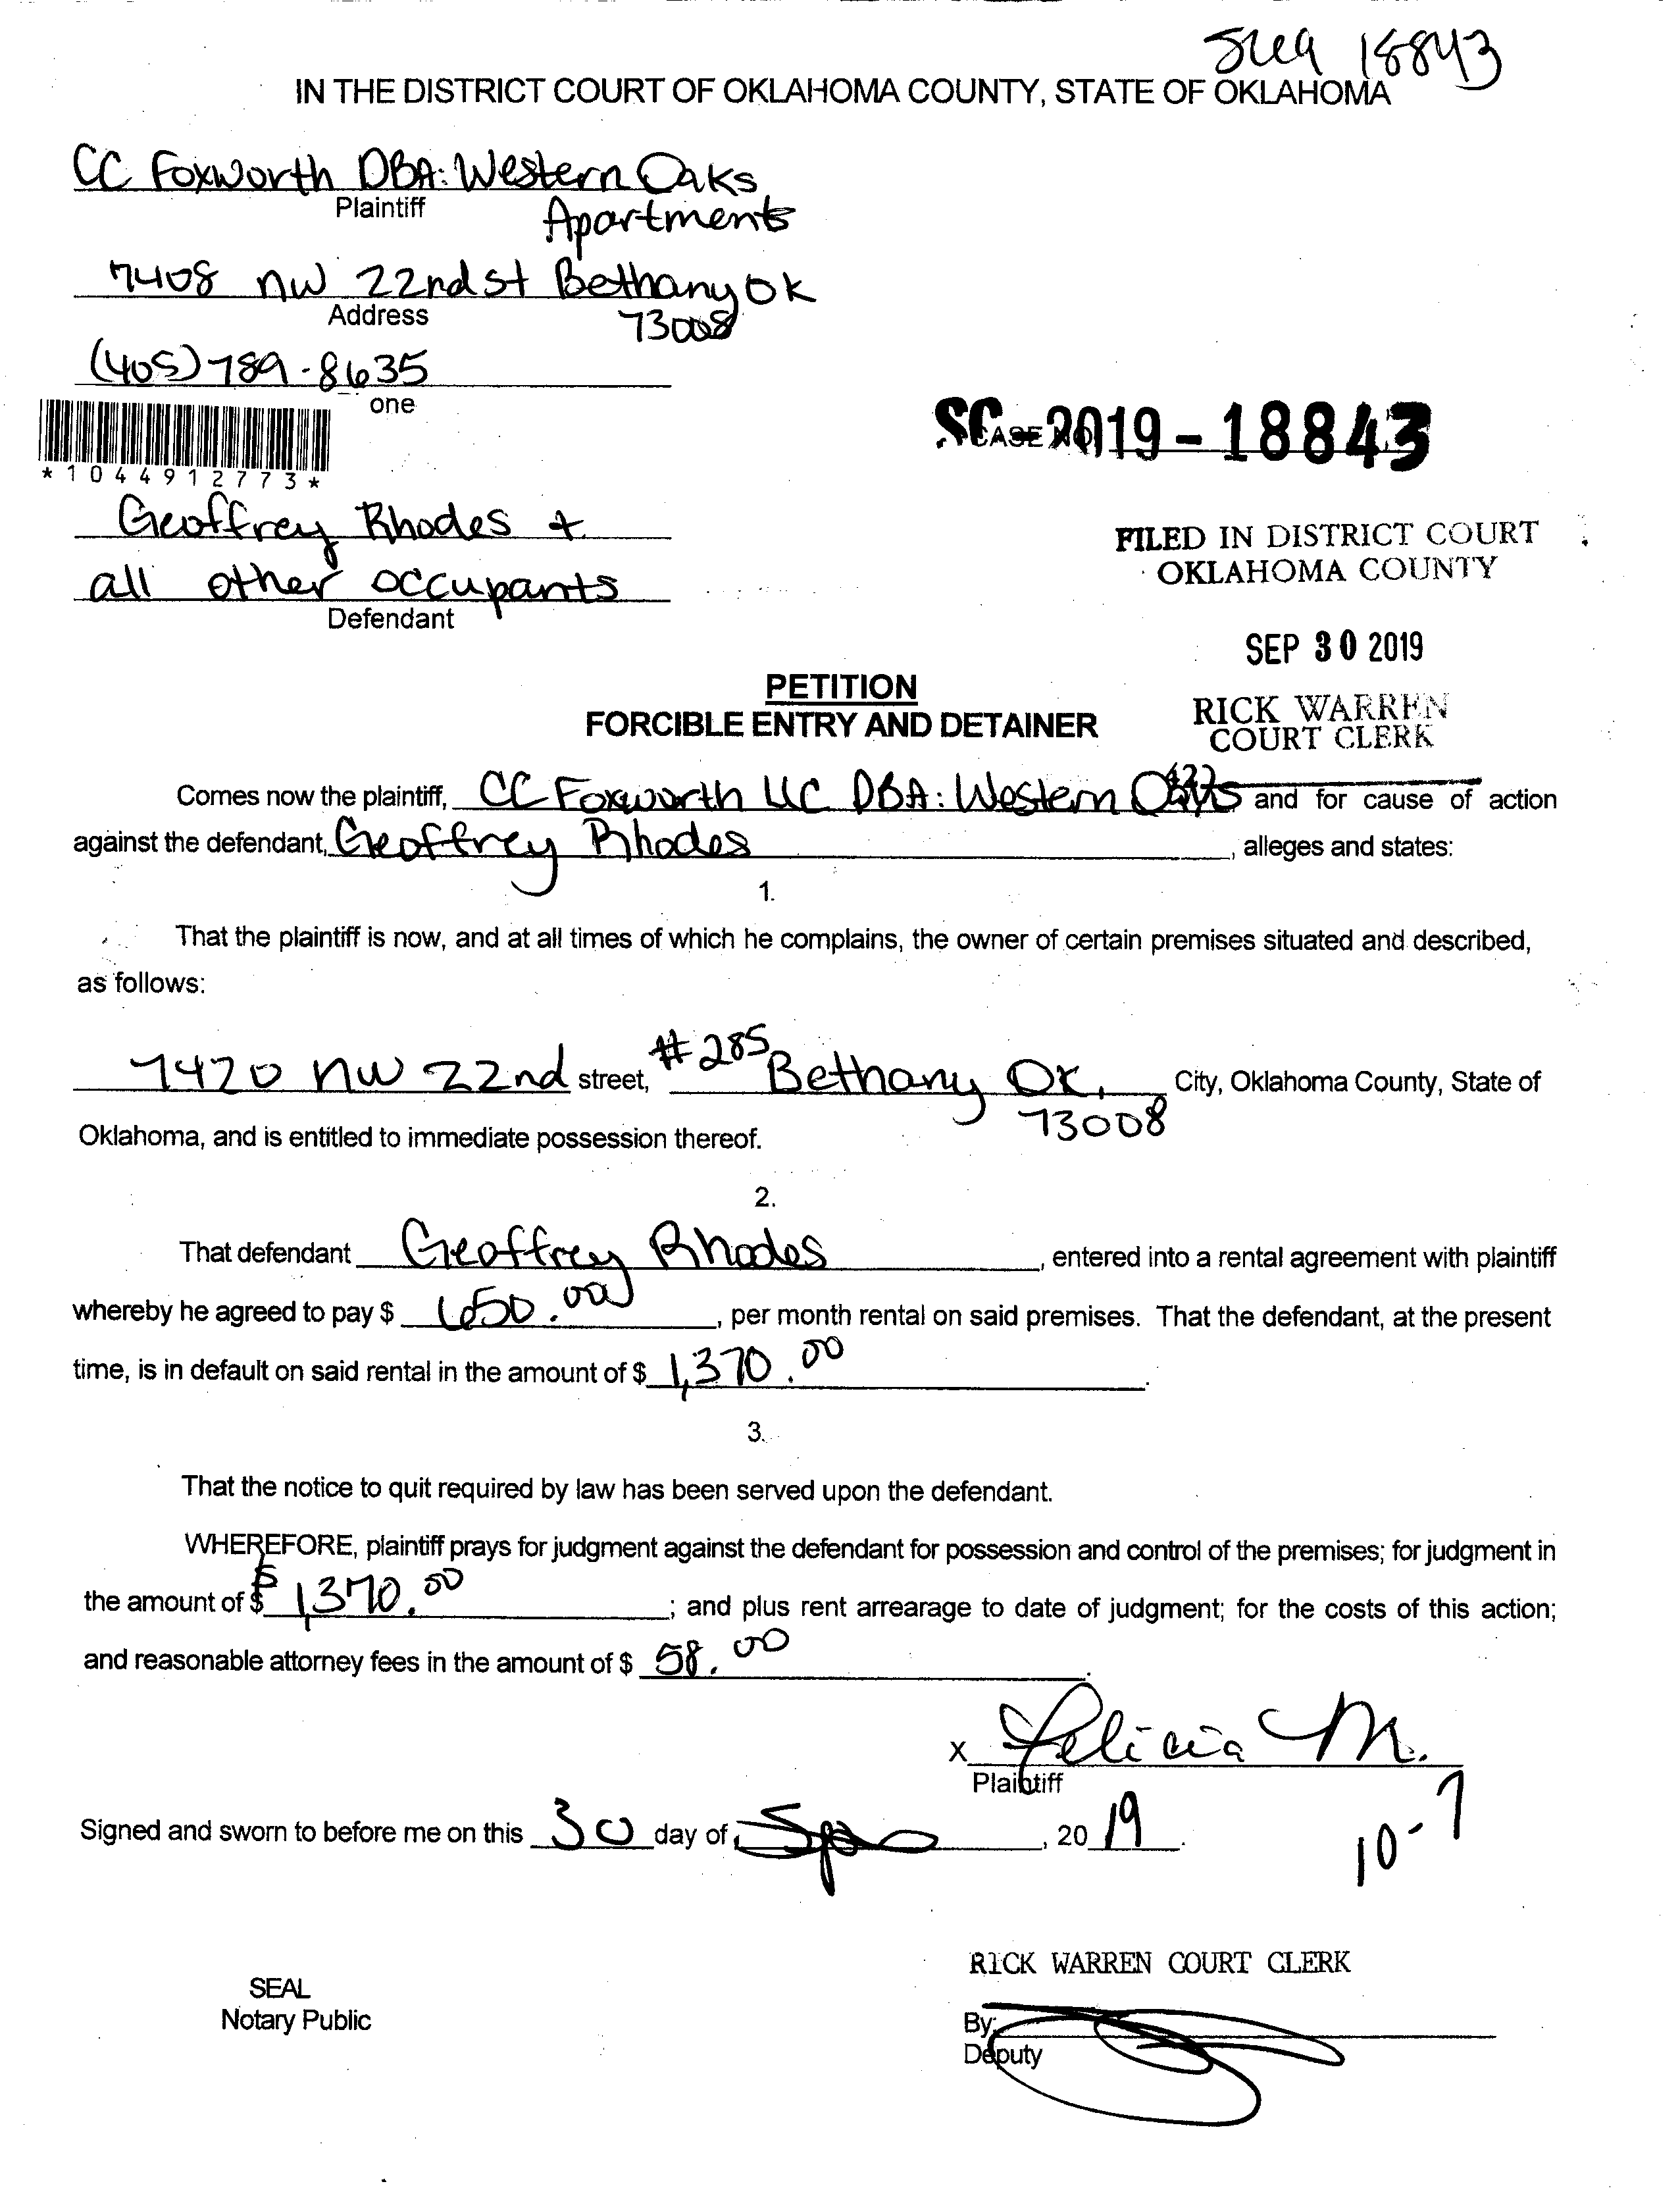 18843
IN THE DISTRICT COURT OF OKLAHOMA COUNTY, STATE OF OKLAHOMA
CC Foxworth DBA: Western Oaks
Plaintiff
Apartments
7408 NW 22nd St Bethany OK
Address
73008
(405) 789-8635
one
*1044912773*
SC-2019-18843
CASE NO.
Geoffrey Rhodes +
all other occupants
Defendant
FILED IN DISTRICT COURT
OKLAHOMA COUNTY
SEP 30 2019
RICK WARREN
COURT CLERK
PETITION
FORCIBLE ENTRY AND DETAINER
Comes now the plaintiff, CC Foxworth LLC DBA: Western Oaks and for cause of action
against the defendant, Geoffrey Rhodes, alleges and states:
1.
That the plaintiff is now, and at all times of which he complains, the owner of certain premises situated and described,
as follows:
7420 NW 22nd street, #285 Bethany OK, City, Oklahoma County, State of
73008
Oklahoma, and is entitled to immediate possession thereof.
2.
That defendant Geoffrey Rhodes, entered into a rental agreement with plaintiff
whereby he agreed to pay $ 650.00, per month rental on said premises. That the defendant, at the present
time, is in default on said rental in the amount of $ 1,370.00.
3.
That the notice to quit required by law has been served upon the defendant.
WHEREFORE, plaintiff prays for judgment against the defendant for possession and control of the premises; for judgment in
the amount of $ 1,370.00; and plus rent arrearage to date of judgment; for the costs of this action;
and reasonable attorney fees in the amount of $ 58.00.
X Felicia M.
Plaintiff
Signed and sworn to before me on this 30 day of, 20 19.
10-7
SEAL
Notary Public
RICK WARREN COURT CLERK
By:
Deputy